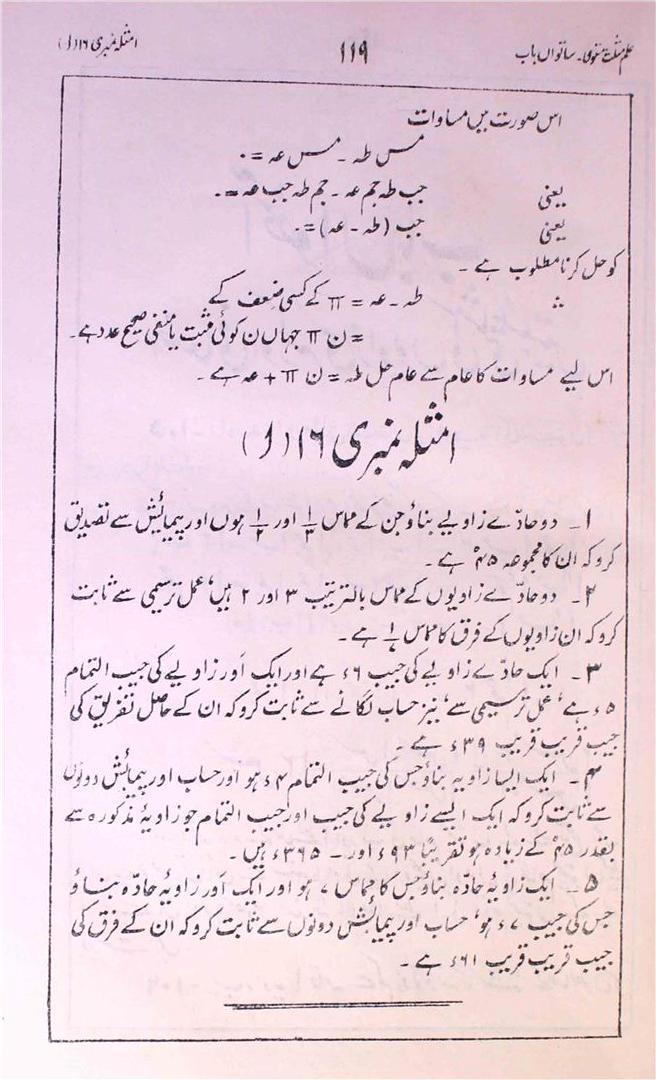 علم مثلث مستوی۔ ساتواں باب
۱۱۹
امثلہ نمبری ۱۶ (ا)
اس صورت میں مساوات
مس طہ ۔ مس عہ = ۰
یعنی جب طہ جم عہ ۔ جم طہ جب عہ = ۰
یعنی جب (طہ ۔ عہ) = ۰
کو حل کرنا مطلوب ہے ۔
∴ طہ ۔ عہ = π کے کسی ضعف کے
= ن π جہاں ن کوئی مثبت یا منفی صحیح عدد ہے۔
اس لیے مساوات کا عام سے عام حل طہ = ن π + عہ ہے ۔
امثلہ نمبری ۱۶ (ا)
۱۔ دو حادّے زاویے بناؤ جن کے مماس ۱/۳ اور ۱/۲ ہوں اور پیمائش سے تصدیق
کرو کہ ان کا مجموعہ ۴۵° ہے ۔
۲۔ دو حادّے زاویوں کے مماس بالترتیب ۳ اور ۲ ہیں، عمل ترسیمی سے ثابت
کرو کہ ان زاویوں کے فرق کا مماس ۱/۷ ہے ۔
۳۔ ایک حادّے زاویے کی جیب ۶ء ہے اور ایک اَور زاویے کی جیب التمام
۵ء ہے، عمل ترسیمی سے، نیز حساب لگانے سے ثابت کرو کہ ان کے حاصل تفریق کی
جیب قریب قریب ۳۹ء ہے ۔
۴۔ ایک ایسا زاویہ بناؤ جس کی جیب التمام ۴ء ہو اور حساب اور پیمائش دونوں
سے ثابت کرو کہ ایک ایسے زاویے کی جیب اور جیب التمام جو زاویۂ مذکورہ سے
بقدر ۴۵° کے زیادہ ہو تقریباً ۹۳ء اور ۔ ۳۶۵ء ہیں ۔
۵۔ ایک زاویۂ حادّہ بناؤ جس کا مماس ۷ ہو اور ایک اَور زاویۂ حادّہ بناؤ
جس کی جیب ۷ء ہو، حساب اور پیمائش دونوں سے ثابت کرو کہ ان کے فرق کی
جیب قریب قریب ۶۱ء ہے ۔